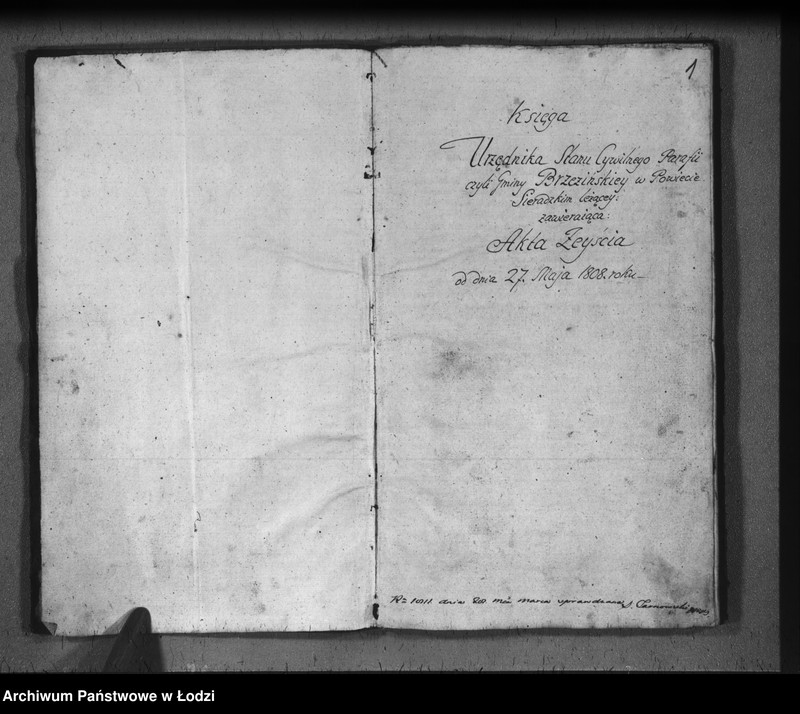 1
Księga
Urzędnika Stanu Cywilnego Parafii
czyli Gminy Brzezińskiey w Powiecie
Sieradzkim leżącey:
zawieraiąca:
Akta Zeyścia
od dnia 27. Maja 1808. roku
dnia 28 marca sprawdzono
Archiwum Państwowe w Łodzi